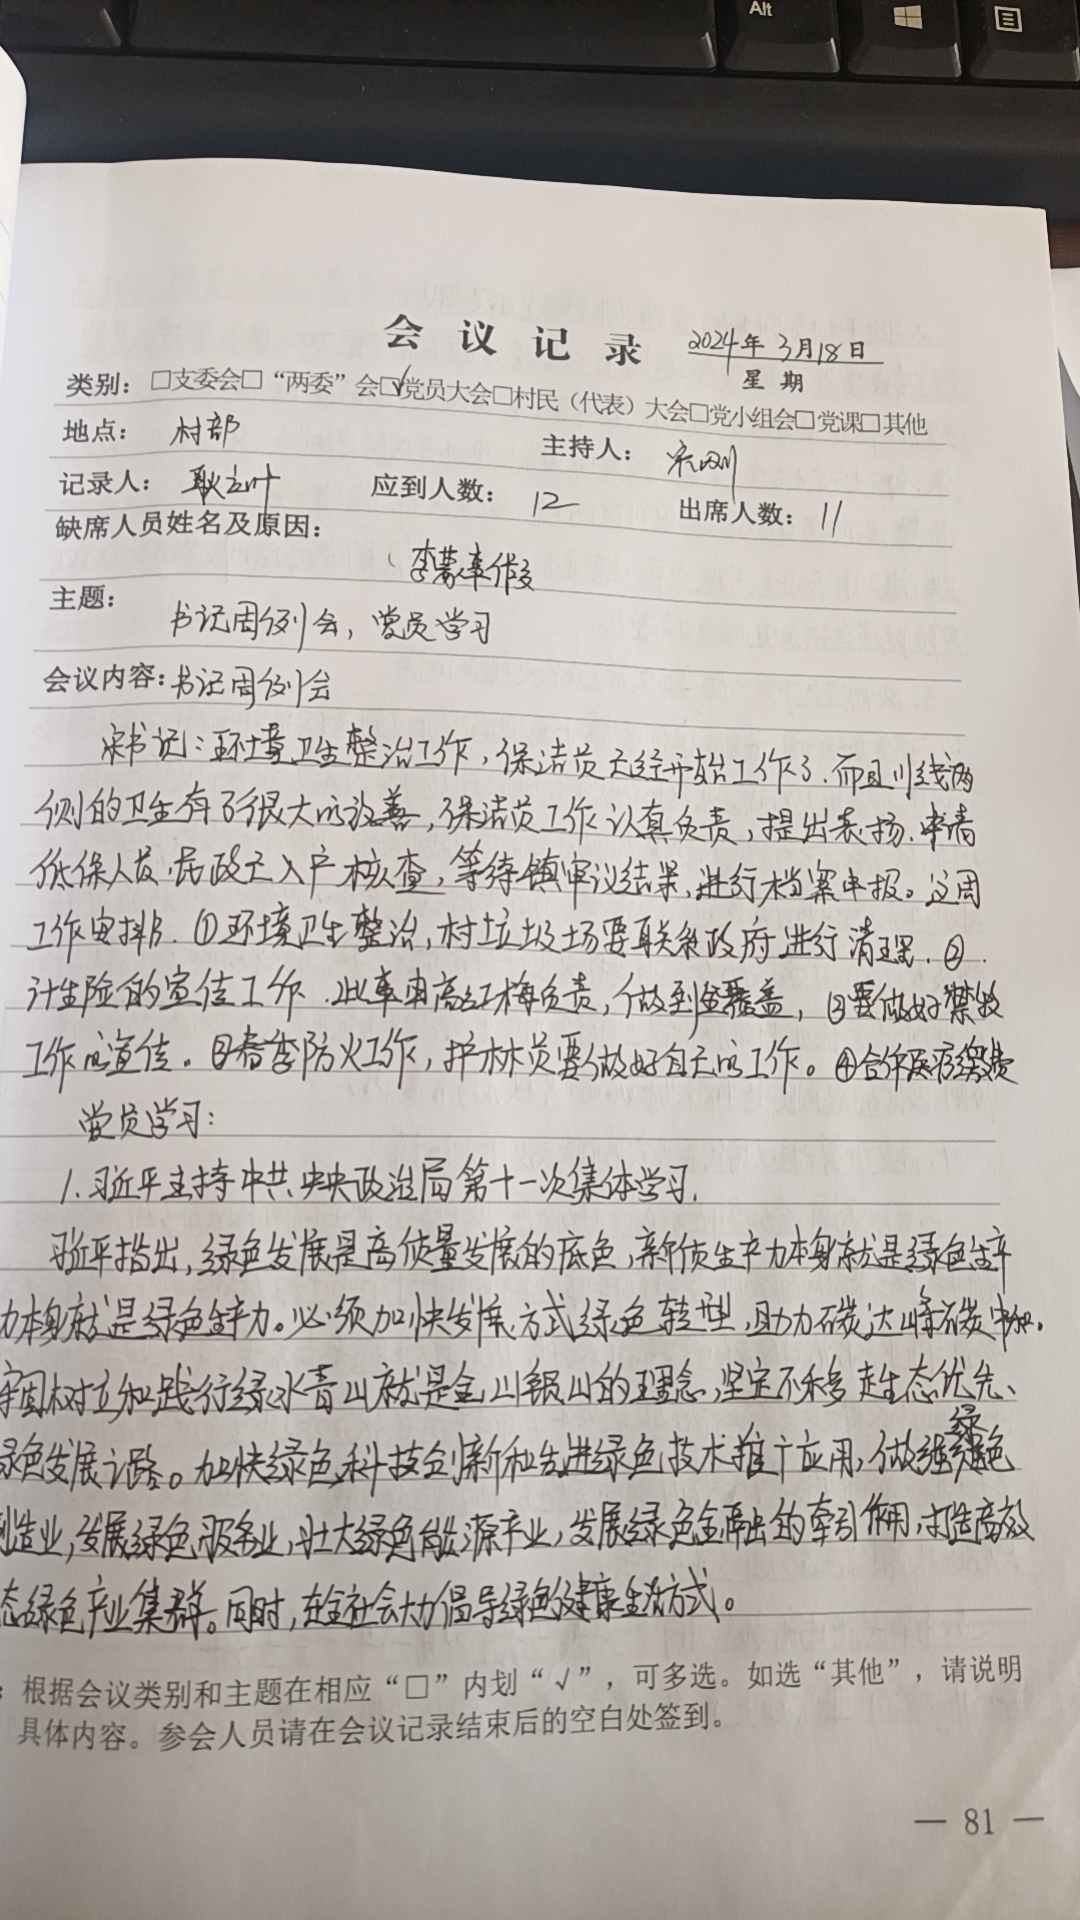 Alt
会议记录 2024年3月18日
星期
类别：□支委会□“两委”会☑党员大会□村民（代表）大会□党小组会□党课□其他
地点： 村部 主持人： 宋刚
记录人： 耿立叶 应到人数： 12 出席人数： 11
缺席人员姓名及原因：
主题： 书记周例会，党员学习
会议内容：书记周例会
宋书记：环境卫生整治工作，保洁员已经开始工作了.而且川线两
侧的卫生有了很大的改善，保洁员工作认真负责，提出表扬.申请
低保人员.民政已入户核查，等待镇审议结果，进行档案申报。这周
工作安排.①环境卫生整治，村垃圾场要联系政府进行清理.②.
计生险的宣传工作.此事由高红梅负责，做到全覆盖，③要做好禁牧
工作的宣传。③春季防火工作，护林员要做好自己的工作。④合作医疗缴费
党员学习：
1.习近平主持中共中央政治局第十一次集体学习.
习近平指出，绿色发展是高质量发展的底色，新质生产力本身就是绿色生产
力本身就是绿色生产力。必须加快发展方式绿色转型，助力碳达峰碳中和。
牢固树立和践行绿水青山就是金山银山的理念，坚定不移走生态优先、
绿色发展之路。加快绿色科技创新和先进绿色技术推广应用，做强绿色
制造业，发展绿色服务业，壮大绿色能源产业，发展绿色金融的牵引作用，打造高效
态绿色产业集群。同时，在全社会大力倡导绿色健康生活方式。
：根据会议类别和主题在相应“□”内划“√”，可多选。如选“其他”，请说明
具体内容。参会人员请在会议记录结束后的空白处签到。
— 81 —